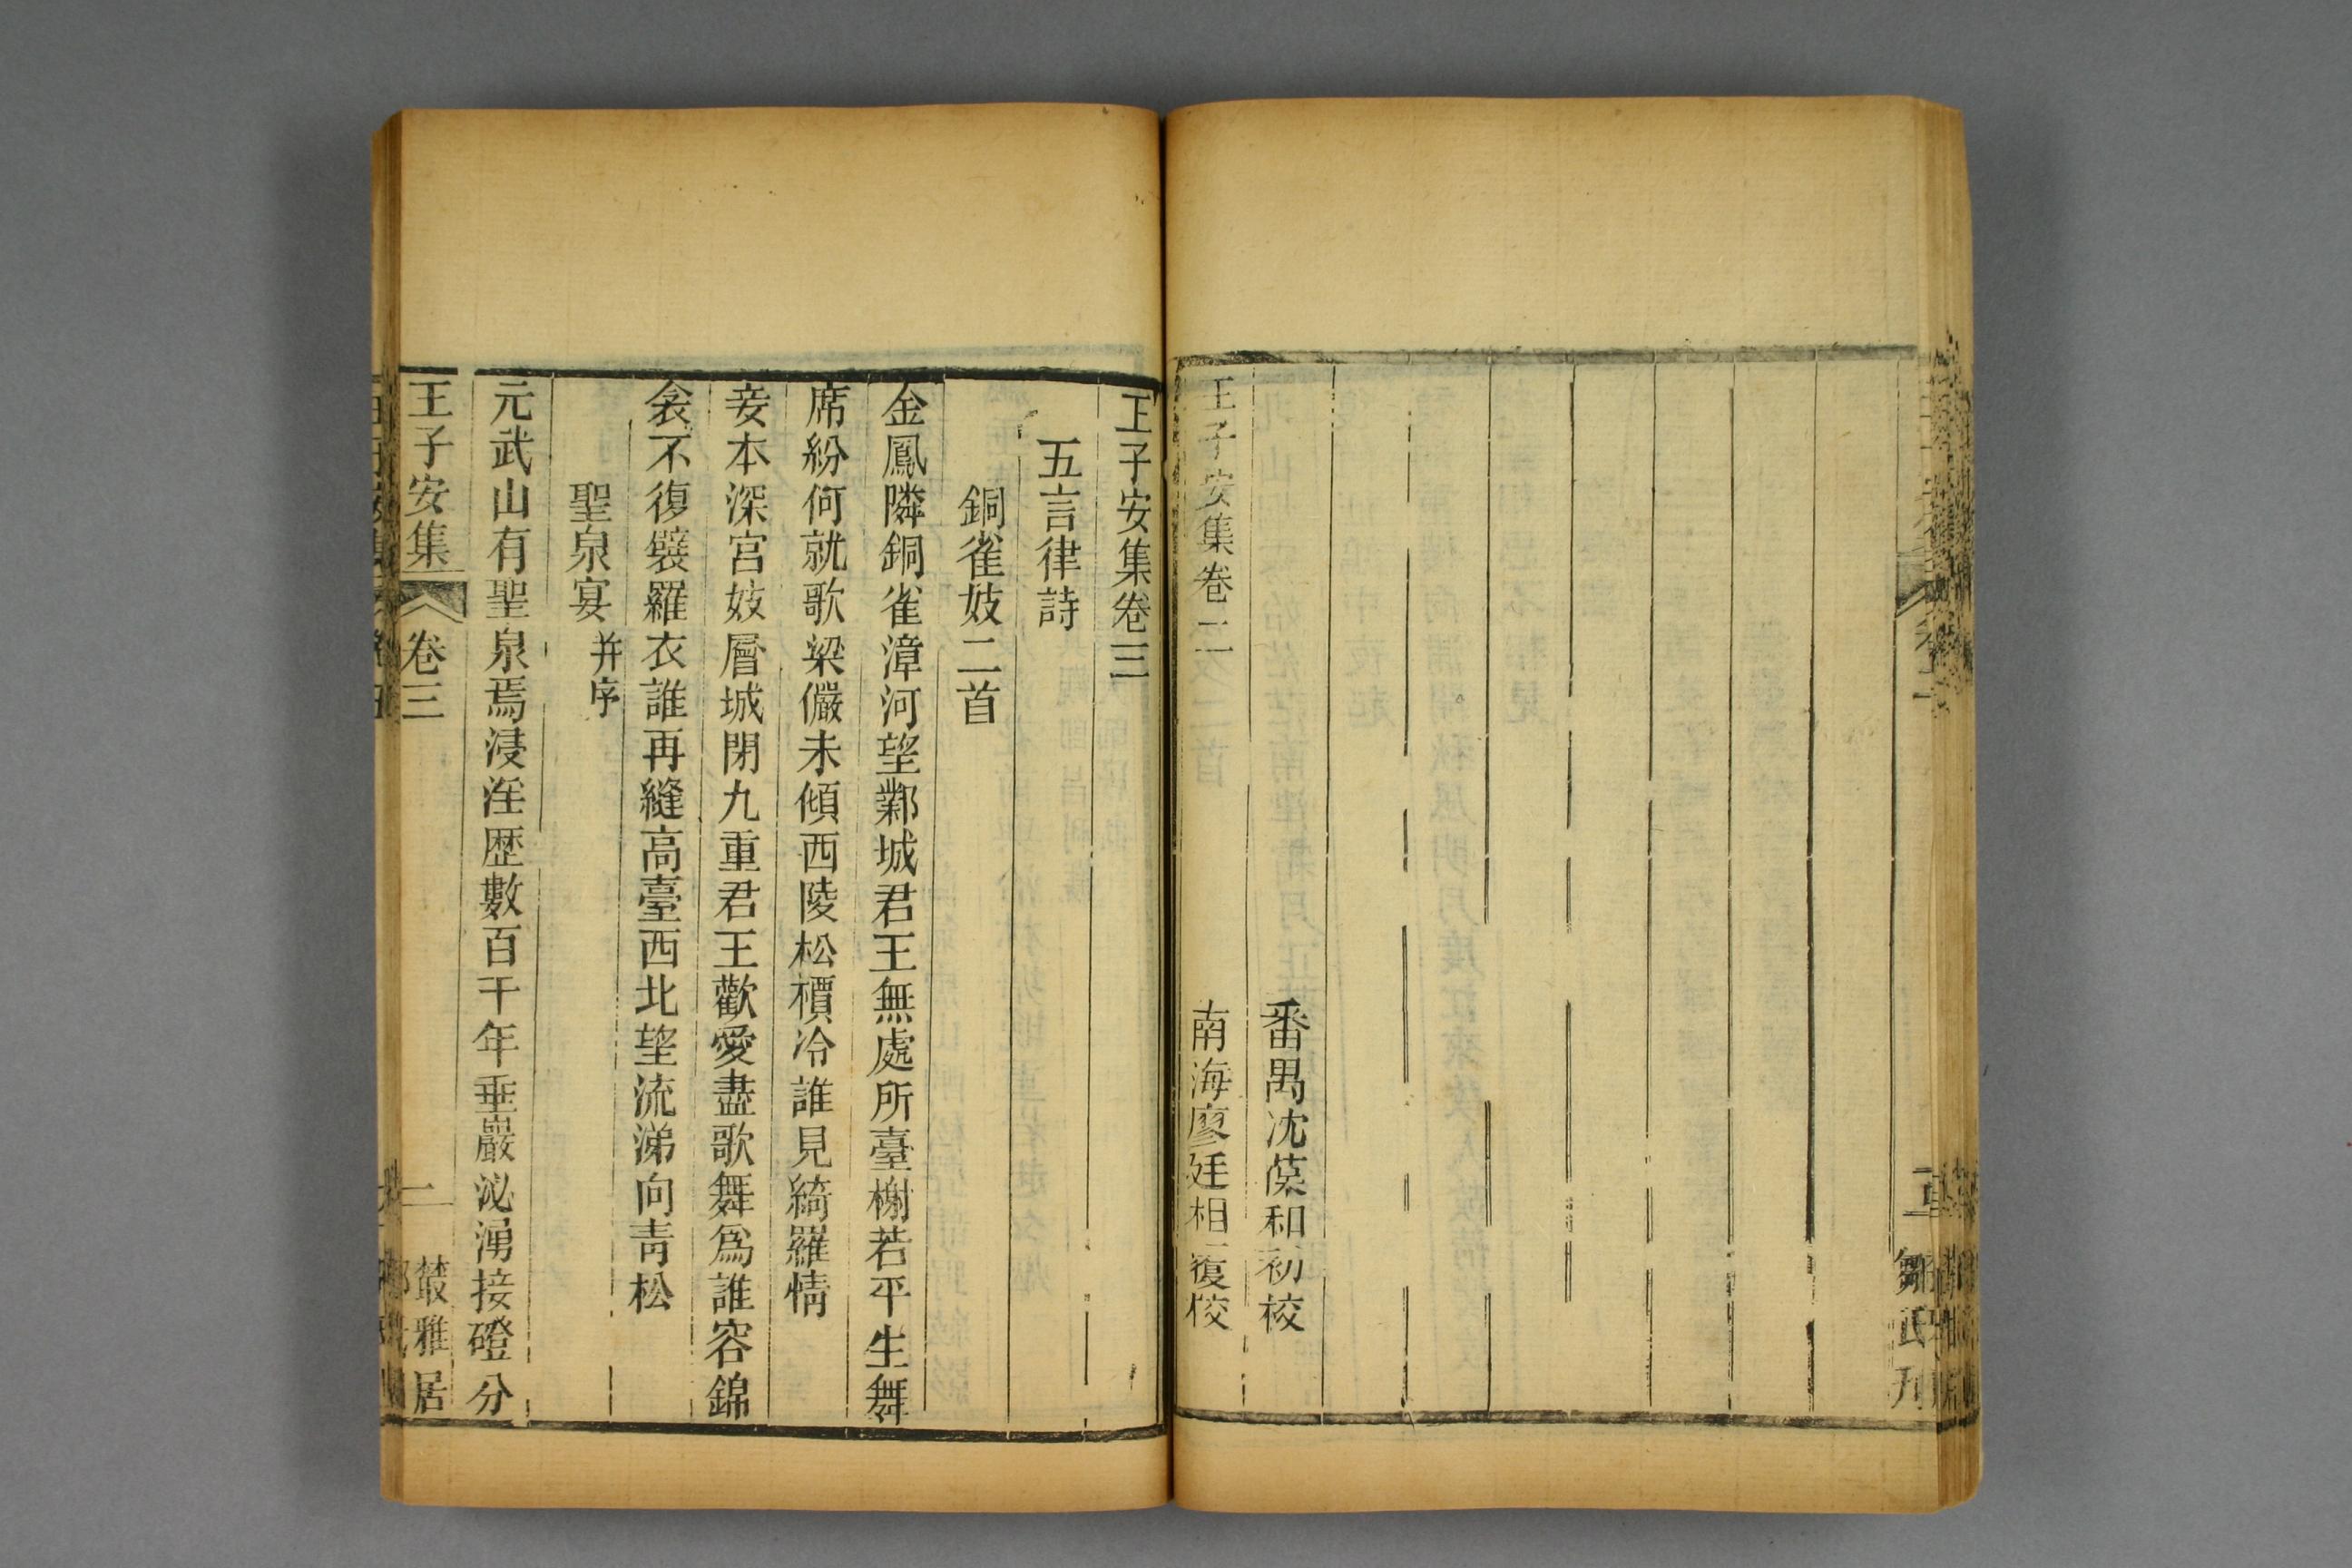 番禺沈葆和初校
王子安集卷二
南海廖廷相覆校
鄒氏刋
王子安集卷三
五言律詩
銅雀妓二首
金鳳隣銅雀漳河望鄴城君王無處所臺榭若平生舞
席紛何就歌梁儼未傾西陵松檟冷誰見綺羅情
妾本深宮妓層城閉九重君王歡愛盡歌舞爲誰容錦
衾不復襞羅衣誰再縫高臺西北望流涕向靑松
聖泉宴并序
元武山有聖泉焉浸淫歷數百千年垂巖泌湧接磴分
王子安集
卷三
一
叢雅居